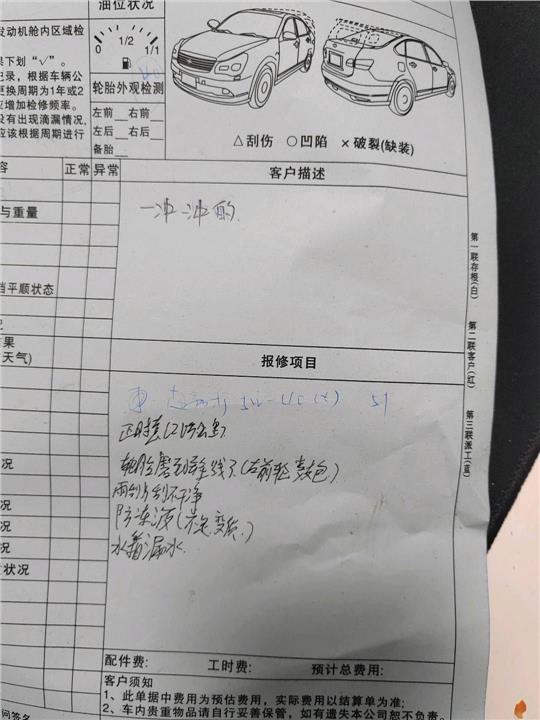 油位状况
发动机舱内区域检
果下划“√”。
记录，根据车辆公
更换周期为1年或2
应增加检修频率。
没有出现滴漏情况,
应该根据周期进行
1/2
0
1/1
轮胎外观检测
左前__右前__
左后__右后__
备胎__
△刮伤 ○凹陷 ×破裂(缺装)
正常
异常
客户描述
一冲一冲的
与重量
挡平顺状态
果
天气)
况
况
况
况
状况
第一联存根(白)
第二联客户(红)
第三联派工(蓝)
报修项目
轮胎磨到线了(右前轮鼓包)
雨刮片刮不干净
防冻液(变质)
水箱漏水
配件费:
工时费:
预计总费用:
客户须知
1、此单据中费用为预估费用，实际费用以结算单为准;
2、车内贵重物品请自行妥善保管，如有遗失本公司恕不负责。
问签名